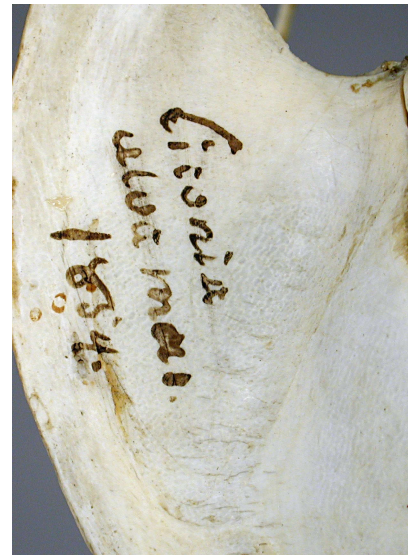 Ciconia
alba mas.
1854.